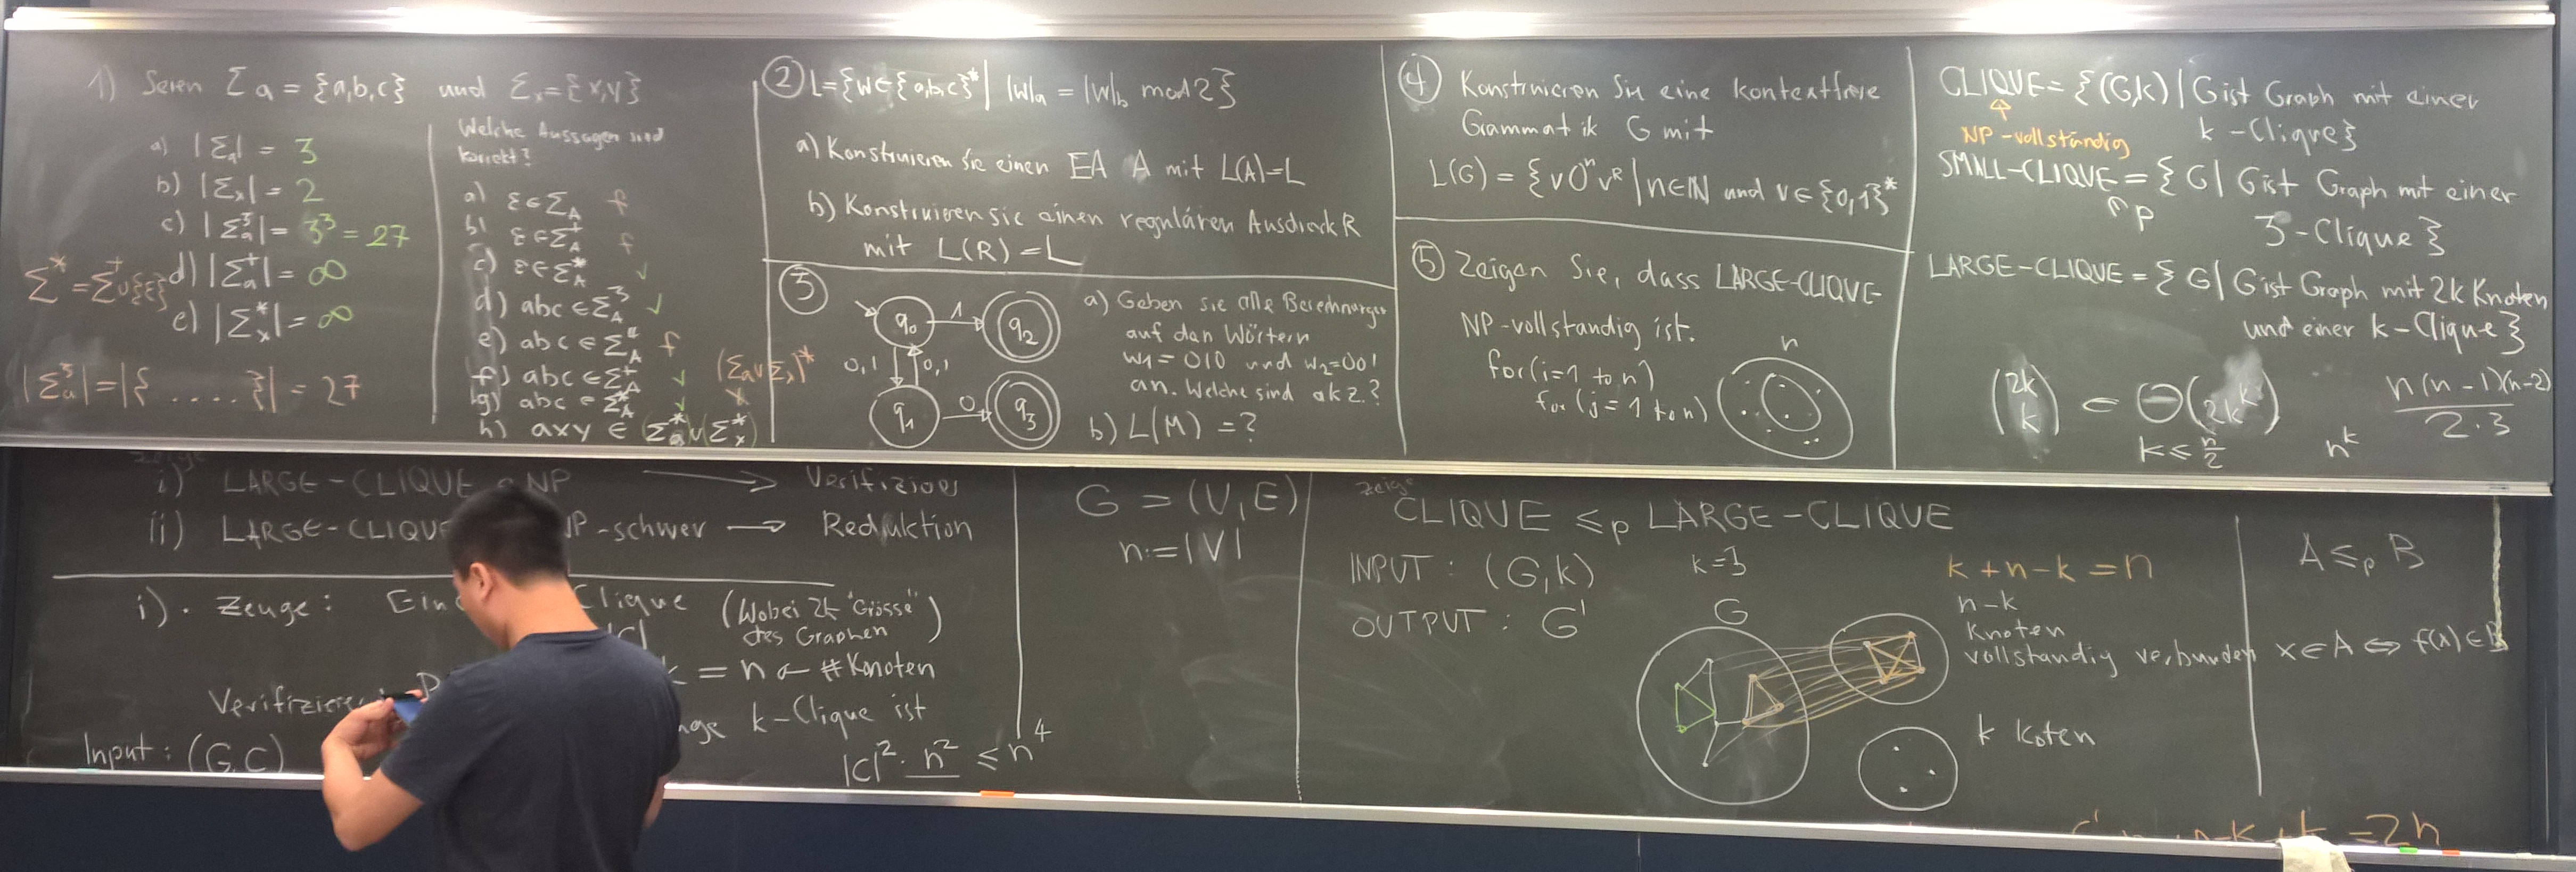 1) Seien Σa = {a,b,c} und Σx = {x,y}
a) |Σa| = 3
b) |Σx| = 2
c) |Σa³| = 3³ = 27
d) |Σa⁺| = ∞
e) |Σx*| = ∞
Σ* = Σ⁺∪{ε}
|Σa³| = |{ ..... }| = 27
Welche Aussagen sind
korrekt?
a) ε∈ΣA f
b) ε∈ΣA⁺ f
c) ε∈ΣA* ✓
d) abc ∈ΣA³ ✓
e) abc ∈ΣA⁴ f
f) abc ∈ΣA⁺ ✓
g) abc ∈ΣA* ✓
h) axy ∈ (Σa*)∪(Σx*)
(Σa∪Σx)*
② L={w∈{a,b,c}* | |w|a = |w|b mod 2}
a) Konstruieren Sie einen EA A mit L(A)=L
b) Konstruieren sie einen regulären Ausdruck R
mit L(R) = L
③
q0 1 q2
0,1 0,1
q1 0 q3
a) Geben sie alle Berechnungen
auf den Wörtern
w1 = 010 und w2=001
an. Welche sind akz.?
b) L(M) = ?
④ Konstruieren Sie eine kontextfreie
Grammatik G mit
L(G) = {v0ⁿvᴿ | n∈ℕ und v∈{0,1}*
⑤ Zeigen Sie, dass LARGE-CLIQUE
NP-vollständig ist.
for(i=1 to n)
for (j=1 to n)
n
CLIQUE = {(G,k) | G ist Graph mit einer
k-Clique}
NP-vollständig
SMALL-CLIQUE = {G | G ist Graph mit einer
3-Clique}
P
LARGE-CLIQUE = {G | G ist Graph mit 2k Knoten
und einer k-Clique}
(2k k) = Θ(2kᵏ)
k ≤ n/2
nᵏ
n(n-1)(n-2)
2·3
Zeige
i) LARGE-CLIQUE ∈ NP → Verifizierer
ii) LARGE-CLIQUE NP-schwer → Reduktion
i). Zeuge: Eine Clique (Wobei 2k "Grösse"
des Graphen)
|C|
= n ← #Knoten
Verifizierer
k-Clique ist
Input: (G,C)
|C|²· n² ≤ n⁴
G = (V,E)
n:=|V|
Zeige
CLIQUE ≤p LARGE-CLIQUE
INPUT: (G,k) k=3
OUTPUT: G'
G
k+n-k = n
n-k
Knoten
vollständig verbunden
k Koten
= 2n
A ≤p B
x∈A ⇔ f(x)∈B